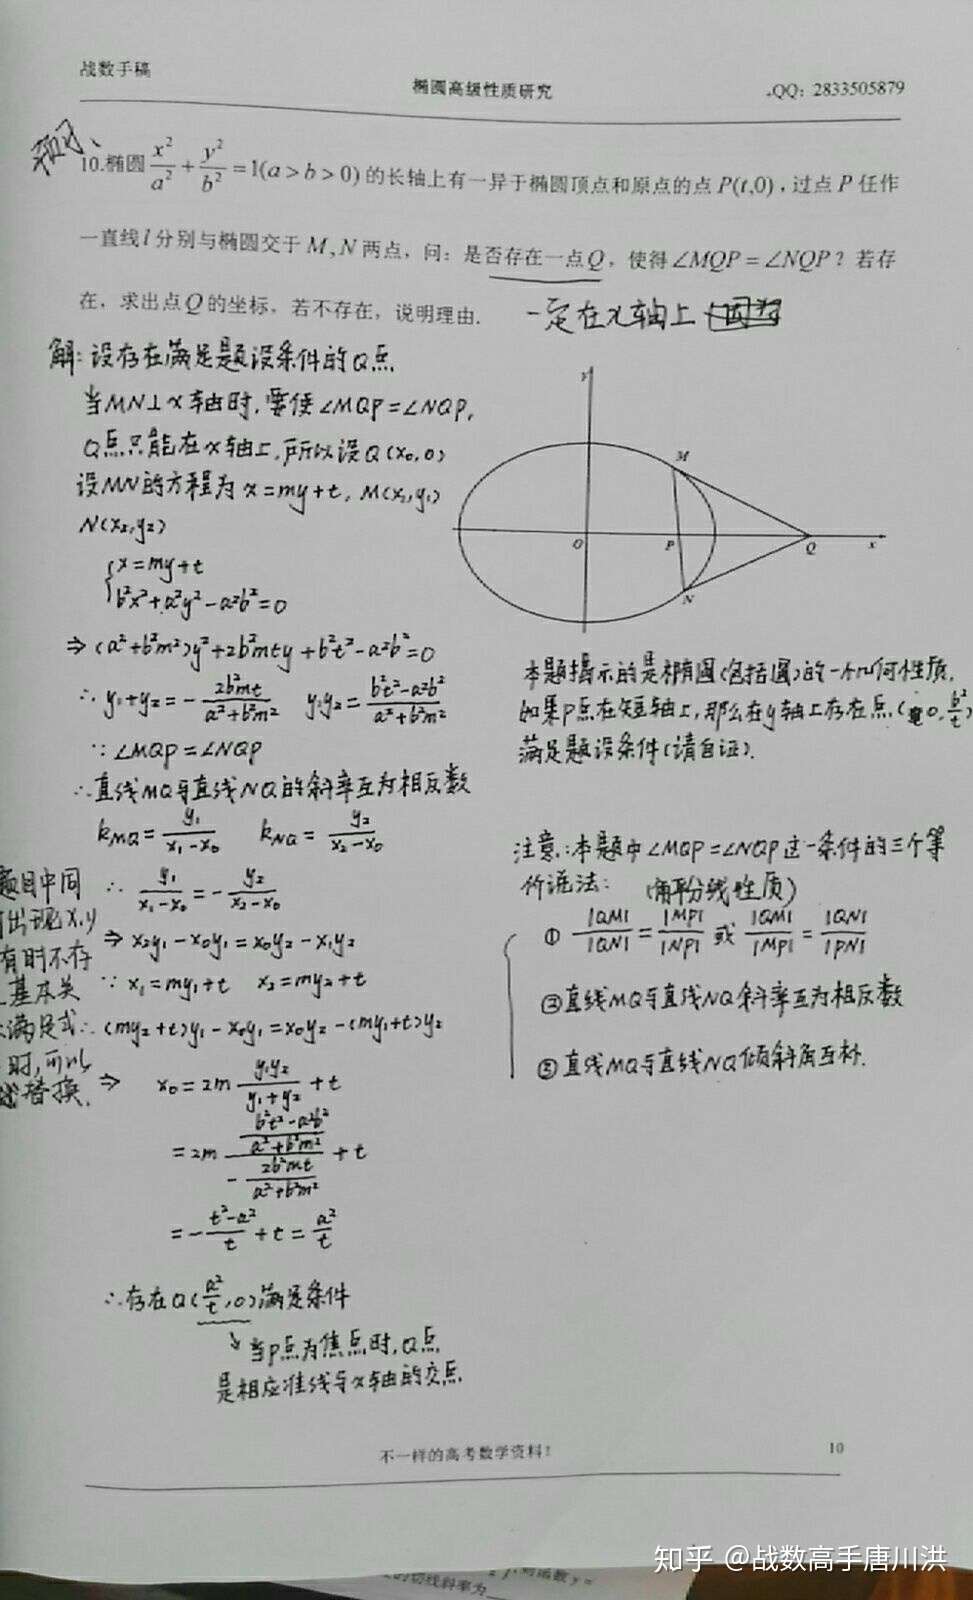 战数手稿
椭圆高级性质研究
QQ：2833505879
10.椭圆 x²/a² + y²/b² = 1(a > b > 0) 的长轴上有一异于椭圆顶点和原点的点 P(t,0)，过点 P 任作
一直线 l 分别与椭圆交于 M, N 两点，问：是否存在一点Q，使得∠MQP=∠NQP？若存
在，求出点Q的坐标，若不存在，说明理由.
一定在x轴上
解：设存在满足题设条件的Q点
当MN⊥x轴时，要使∠MQP=∠NQP，
Q点只能在x轴上，所以设Q(x₀,0)
设MN的方程为 x=my+t，M(x₁,y₁)
N(x₂,y₂)
{ x=my+t
b²x²+a²y²-a²b²=0
⇒ (a²+b²m²)y²+2b²mty+b²t²-a²b²=0
∴ y₁+y₂=-2b²mt/(a²+b²m²) y₁y₂=(b²t²-a²b²)/(a²+b²m²)
∵ ∠MQP=∠NQP
∴直线MQ与直线NQ的斜率互为相反数
k_MQ=y₁/(x₁-x₀) k_NQ=y₂/(x₂-x₀)
∴ y₁/(x₁-x₀)=-y₂/(x₂-x₀)
⇒ x₂y₁-x₀y₁=x₀y₂-x₁y₂
∵ x₁=my₁+t x₂=my₂+t
∴(my₂+t)y₁-x₀y₁=x₀y₂-(my₁+t)y₂
⇒ x₀=2m y₁y₂/(y₁+y₂)+t
=2m ((b²t²-a²b²)/(a²+b²m²))/(-2b²mt/(a²+b²m²))+t
=-(t²-a²)/t+t=a²/t
∴存在Q(a²/t,0)满足条件
↘当P点为焦点时，Q点
是相应准线与x轴的交点
题目中同
出现x,y
有时不存
基本关
满足式
时，可以
替换.
y
M
O
P
Q
x
N
本题揭示的是椭圆(包括圆)的一个几何性质，
如果P点在短轴上，那么在y轴上存在点(0,b²/t)
满足题设条件(请自证).
注意：本题中∠MQP=∠NQP这一条件的三个等
价说法： (角平分线性质)
① |QM|/|QN|=|MP|/|NP| 或 |QM|/|MP|=|QN|/|PN|
②直线MQ与直线NQ斜率互为相反数
③直线MQ与直线NQ倾斜角互补.
不一样的高考数学资料！
10
知乎 @战数高手唐川洪
的切线斜率为